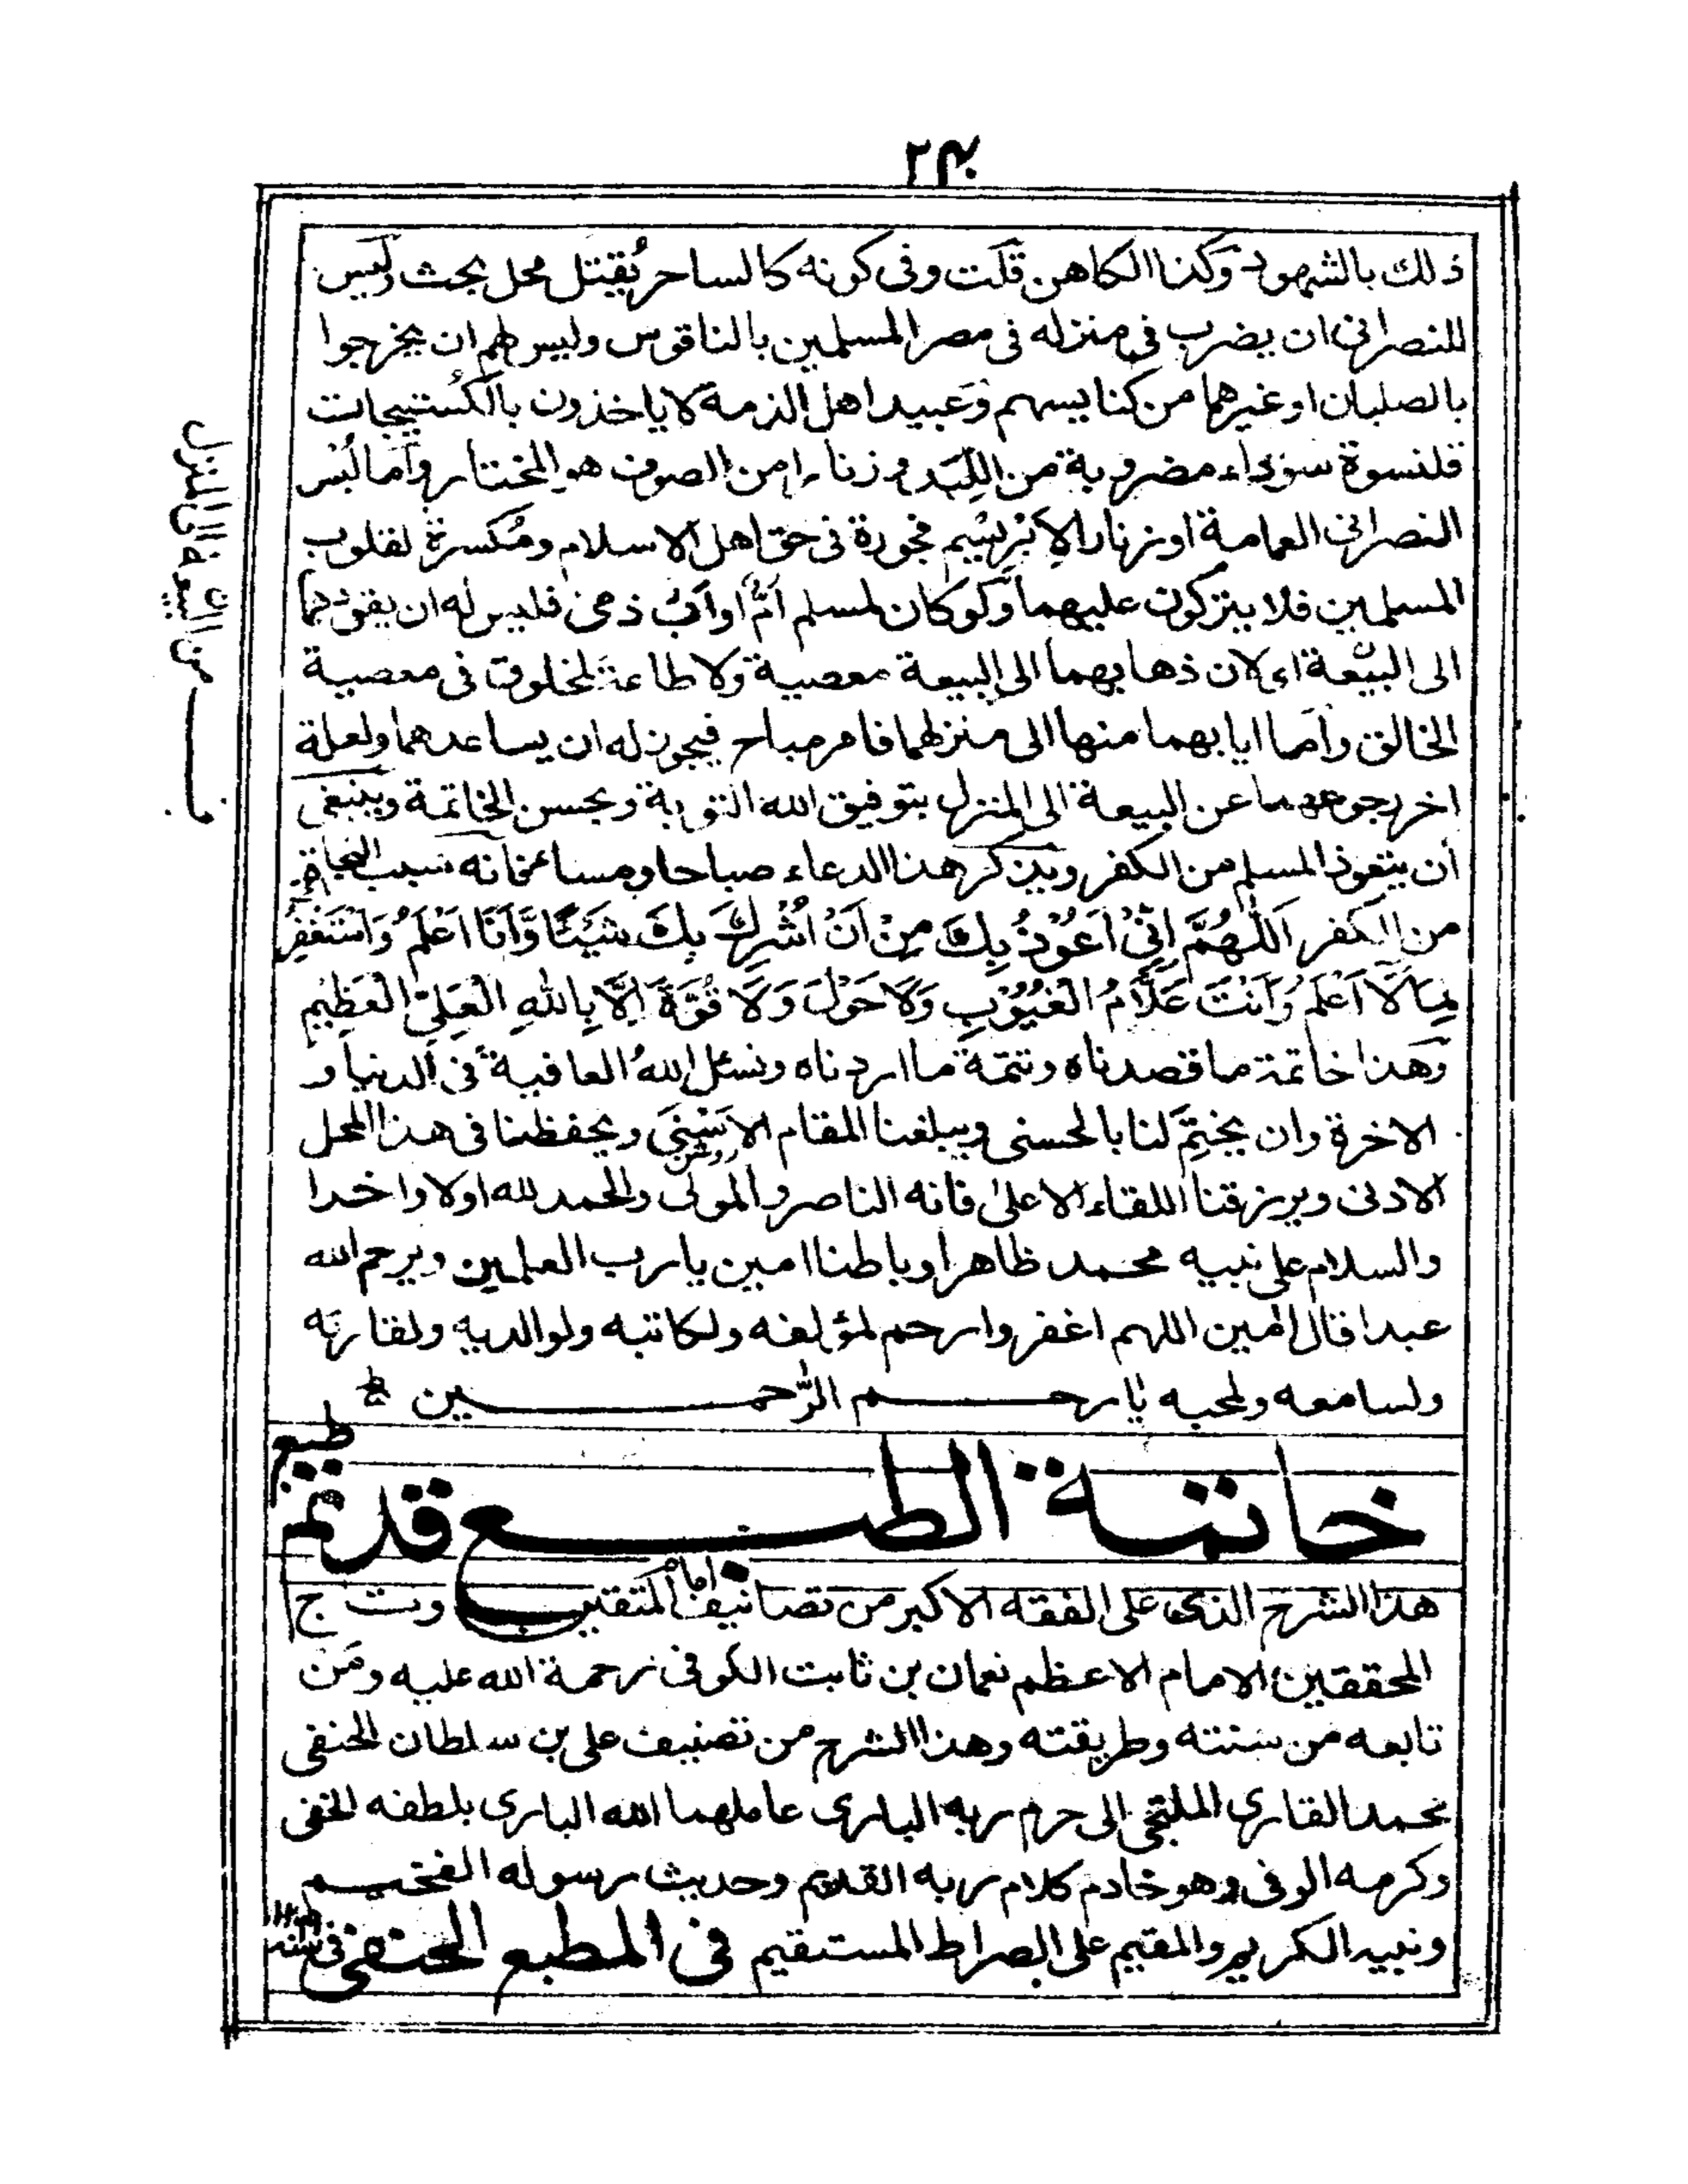 ٢٤٠
ذلك بالشهود وكذا الكاهن قلت وفى كونه كالساحر يُقتل محل بحث وليس
للنصرانى ان يضرب فى منزله فى مصر المسلمين بالناقوس وليس لهم ان يخرجوا
بالصلبان او غيرها من كنايسهم وعبيد اهل الذمة لا ياخذون بالكُستيجات
قلنسوة سوداء مضروبة من اللبد و زنارا من الصوف هو المختار واما لبس
النصرانى العمامة او زنار الابريسم فجورة فى حق اهل الاسلام ومكسرة لقلوب
المسلمين فلا يتركون عليهما ولو كان لمسلم امٌّ او ابٌ ذمى فليس له ان يقودهما
الى البيعة اى لان ذهابهما الى البيعة معصية ولا طاعة لمخلوق فى معصية
الخالق واما ايابهما منها الى منزلهما فامر مباح فيجوز له ان يساعدهما ولعلة
اخر رجوعهما عن البيعة الى المنزل بتوفيق الله التوبة وبحسن الخاتمة وينبغى
ان يتعوذ المسلم من الكفر ويذكر هذا الدعاء صباحا ومساء فانه سبب النجاة
من الكفر اَللّٰهُمَّ اِنِّىْ اَعُوْذُ بِكَ مِنْ اَنْ اُشْرِكَ بِكَ شَيْئًا وَّاَنَا اَعْلَمُ وَاَسْتَغْفِرُكَ
لِمَا لَا اَعْلَمُ وَاَنْتَ عَلَّامُ الْغُيُوْبِ وَلَا حَوْلَ وَلَا قُوَّةَ اِلَّا بِاللّٰهِ الْعَلِىِّ الْعَظِيْمِ
وهذا خاتمة ما قصدناه وتتمة ما اردناه ونسئل اللهُ العافية فى الدنيا و
الاخرة وان يختم لنا بالحسنى ويبلغنا المقام الاسنى ويحفظنا فى هذا المحل
الادنى ويرزقنا اللقاء الاعلى فانه الناصر والمولى والحمد لله اولا واخدا
والسلام على نبيه محمد ظاهرا وباطنا امين يا رب العلمين ويرحم الله
عبدا قال امين اللهم اغفر وارحم لمؤلفه ولكاتبه ولوالديه ولقاريه
ولسامعه ولمحبه يا ارحم الرّحمين
خاتمة الطبع قد تم طبع
هذا الشرح الذى على الفقه الاكبر من تصانيف امام المتقين وتاج
المحققين الامام الاعظم نعمان بن ثابت الكوفى رحمة الله عليه ومن
تابعه من سنته وطريقته وهذا الشرح من تصنيف على بن سلطان الحنفى
محمد القارى الملتجى الى حرم ربه البارى عاملهما الله البارى بلطفه الخفى
وكرمه الوفى وهو خادم كلام ربه القديم وحديث رسوله الفخيم
ونبيه الكريم والمقيم على الصراط المستقيم فى المطبع الحنفى فى سنه
من البيعة الى المنزل